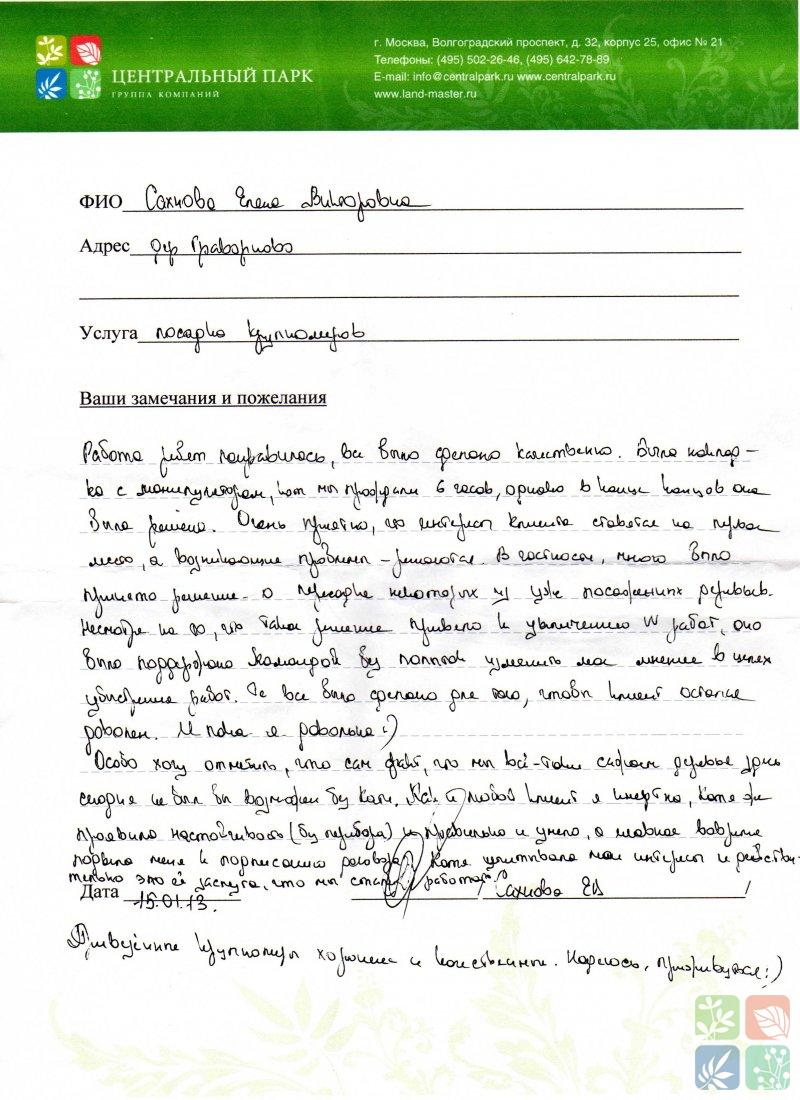 ЦЕНТРАЛЬНЫЙ ПАРК
ГРУППА КОМПАНИЙ
г. Москва, Волгоградский проспект, д. 32, корпус 25, офис № 21
Телефоны: (495) 502-26-46, (495) 642-78-89
E-mail: info@centralpark.ru www.centralpark.ru
www.land-master.ru
ФИО Сахнова Елена Викторовна
Адрес дер Граворново
Услуга посадка крупномеров
Ваши замечания и пожелания
Работа ребят понравилось, все было сделано качественно. Была наклад-
ка с манипулятором, кот мы прождали 6 часов, однако в конце концов она
была решена. Очень приятно, что интересы клиента ставятся на первое
место, а возникающие проблемы - решаются. В частности, мною было
принято решение о пересадке некоторых из уже посаженных деревьев.
Несмотря на то, что такое решение привело к увеличению V работ, оно
было поддержано командой без попыток изменить мое мнение в целях
убыстрения работ. Те все было сделано для того, чтобы клиент остался
доволен. И пока я довольна :)
Особо хочу отметить, что сам факт, что мы всё-таки сажаем деревья здесь
сегодня не был бы возможен без Кати. Как и любой клиент я инертна, Катя же
проявила настойчивость (без перебора) правильно и умело, а главное вовремя
подвела меня к подписанию договора. Катя учитывала мои интересы и действи-
тельно это её заслуга, что мы стали работать.
Дата 15.01.13. / Сахнова ЕВ /
Привезённые крупномеры хорошие и качественные. Надеюсь, приживутся :)